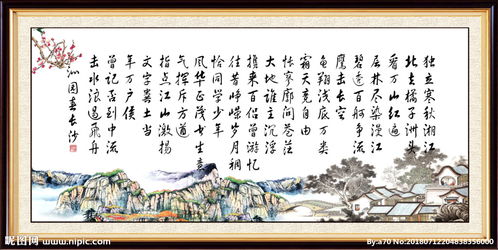 独立寒秋湘江
北去橘子洲头
看万山红遍
层林尽染漫江
碧透百舸争流
鹰击长空
鱼翔浅底万类
霜天竞自由
怅寥廓问苍茫
大地谁主沉浮
携来百侣曾游忆
往昔峥嵘岁月稠
恰同学少年
风华正茂书生意
气挥斥方遒
指点江山激扬
文字粪土当
年万户侯
曾记否到中流
击水浪遏飞舟
沁园春长沙
昵图网 www.nipic.com
By:a70 No:20180712204838356000